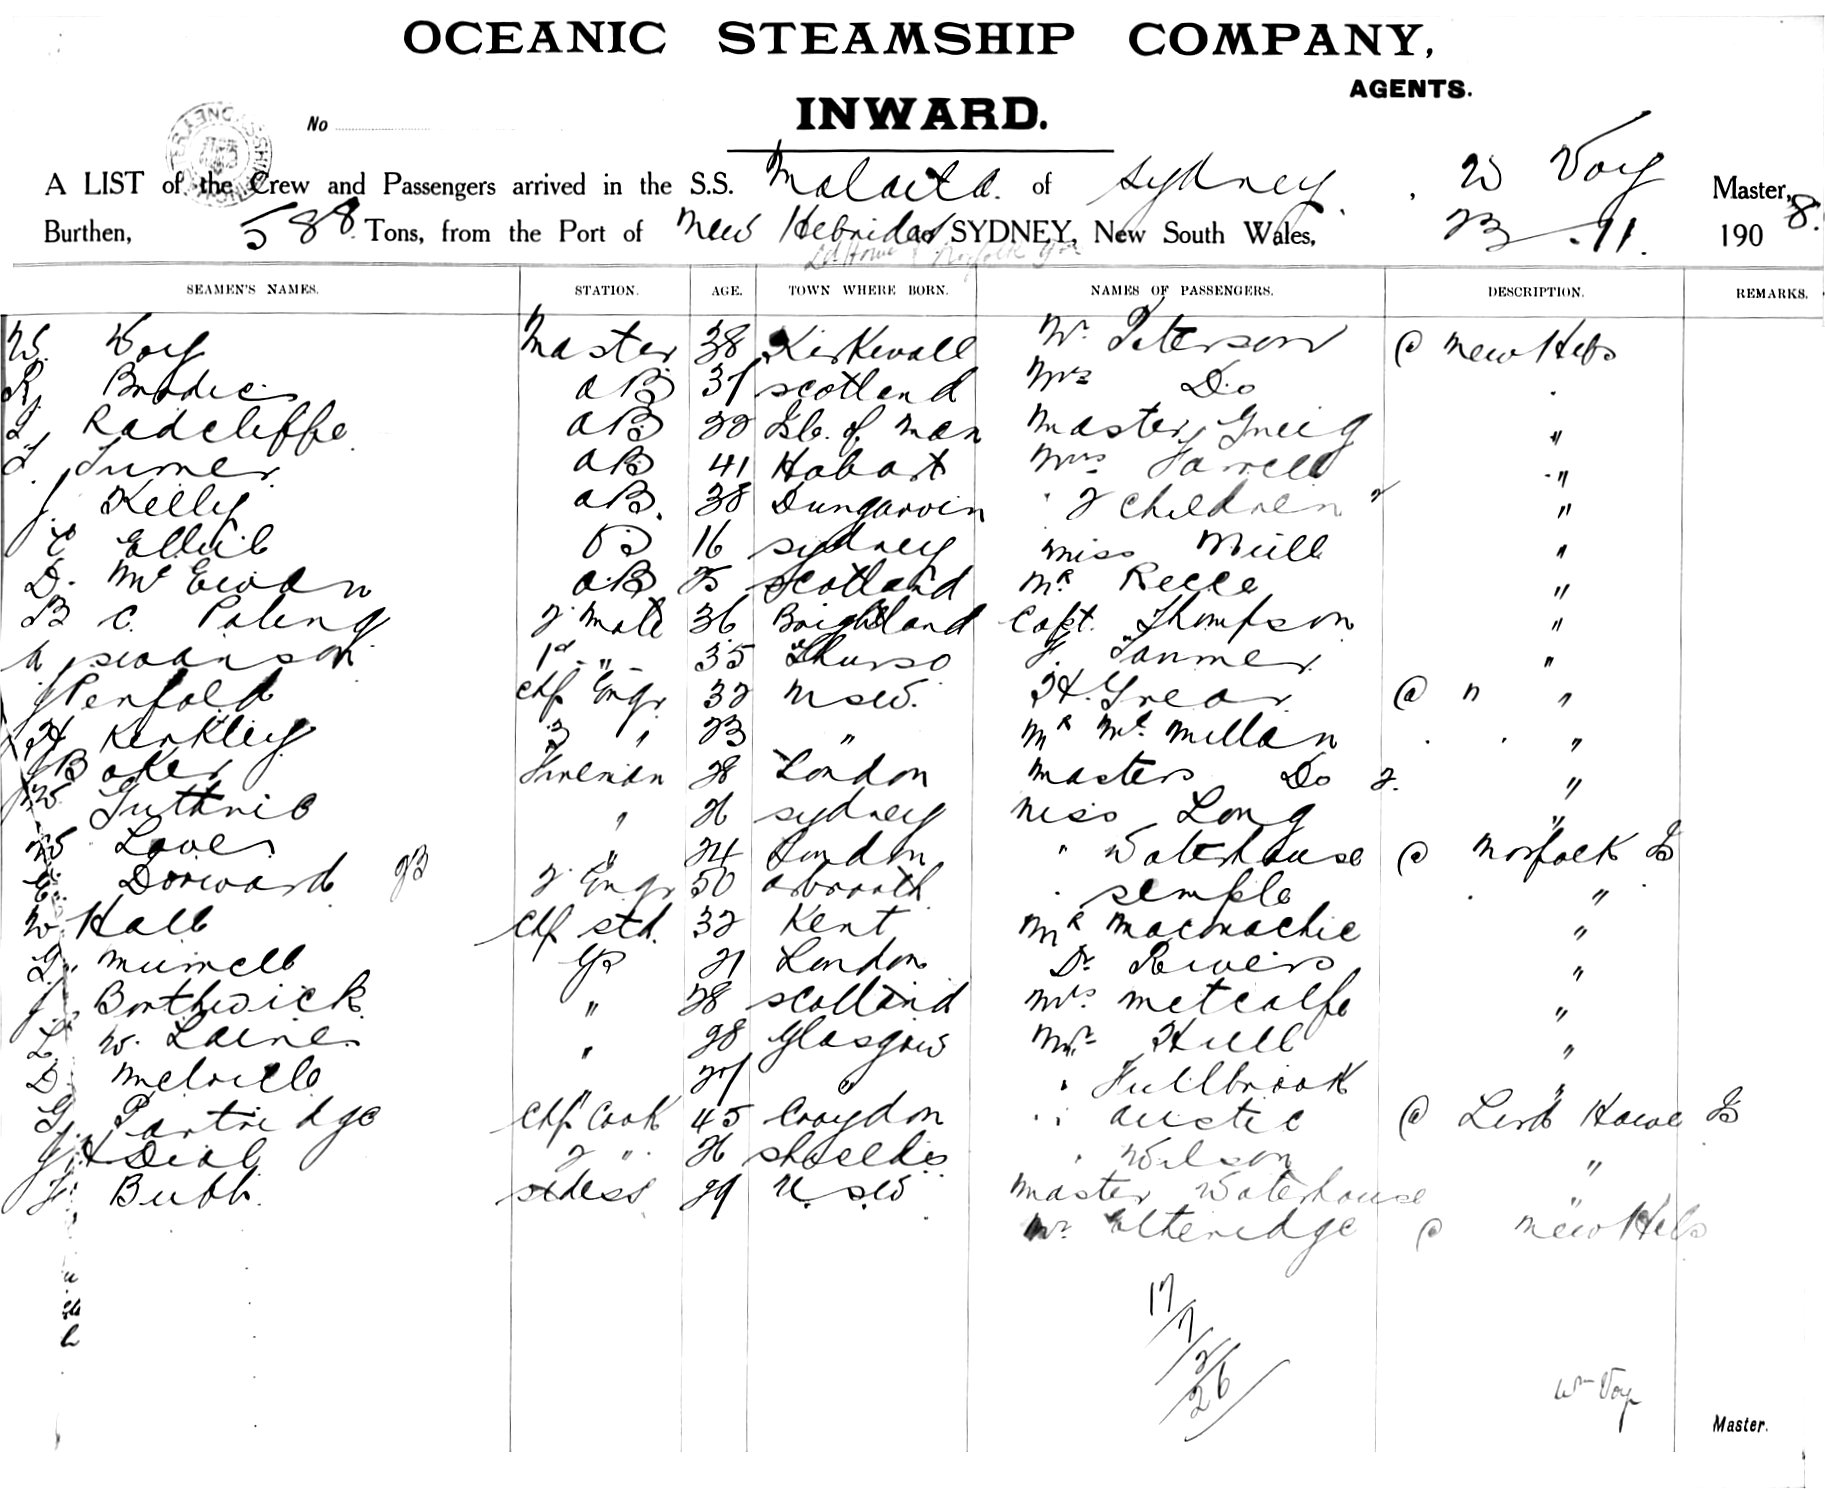 OCEANIC STEAMSHIP COMPANY,
AGENTS.
INWARD.
No
A LIST of the Crew and Passengers arrived in the S.S. Malaita. of Sydney. W Voy Master,
Burthen, 588 Tons, from the Port of New Hebrides to SYDNEY, New South Wales, 23 - 11. 1908.
Ld Howe & Norfolk
SEAMEN'S NAMES. STATION. AGE. TOWN WHERE BORN. NAMES OF PASSENGERS. DESCRIPTION. REMARKS.
W. Voy Master 38 Kirkwall Mr Peterson @ New Hebs
R. Brodie AB 37 Scotland Mrs Do "
Radcliffe AB 22 Isle of Man Master Greig "
Turner AB 41 Hobart Mrs Farrell "
J. Kelly AB. 38 Dungarvin " 2 Children 2 "
E 16 Sydney Miss "
D. McEwan AB 25 Scotland Mr Reece "
B C. Paleng 2 Mate 36 Capt. Thompson "
A Swanson 1st " 35 Thurso Tanner "
J Penfold Chf Engr 32 NSW. H. Grear @ " "
H Kenkley 3 " 23 " Mr McMillan "
J Baker Fireman 28 London Masters Do 2. "
W Guthrie " 26 Sydney Miss Long "
W Love " 24 London " Waterhouse @ Norfolk Is
Dorward 2 Engr 50 Arbroath " Semple "
W Hall Chf Std. 32 Kent Mr Maconachie "
G. Murrell GS 21 London Dr Rivers "
J. Borthwick " 28 Scotland Mrs Metcalfe "
L. W. Laine " 28 Glasgow Mr Hull "
D. Melville " 27 " " Fullbrook "
G. Partridge Chf Cook 45 Croydon " Austic @ Lord Howe Is
J H Dial 2 " 26 Shields " Wilson "
F. Bubb. Stdess 29 N.S.W Master Waterhouse "
Mr Etheridge @ New Hebs
17
7
2
26
Wm Voy
Master.